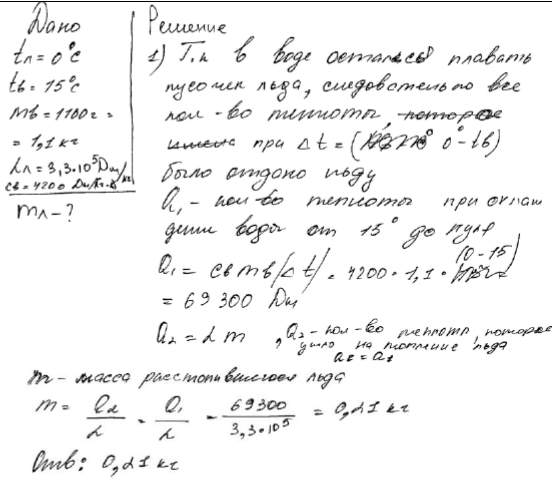 Дано
tл = 0°C
tв = 15°C
mв = 1100г =
= 1,1 кг
λл = 3,3·10⁵ Дж/кг
cв = 4200 Дж/кг·°C
mл - ?
Решение
1) Т.к в воде остался плавать
кусочек льда, следовательно все
кол-во теплоты, которое
при Δt = ( 0° - tв)
было отдано льду
Q₁ - кол-во теплоты при охлаж
дении воды от 15° до нуля
(0-15)
Q₁ = cв mв (Δt) = 4200 · 1,1 ·
= 69 300 Дж
Q₂ = λ m , Q₂ - кол-во теплоты, которое
ушло на топление льда
Q₂ = Q₁
m - масса растопившегося льда
m = Q₂/λ = Q₁/λ = 69300/3,3·10⁵ = 0,21 кг
Отв: 0,21 кг